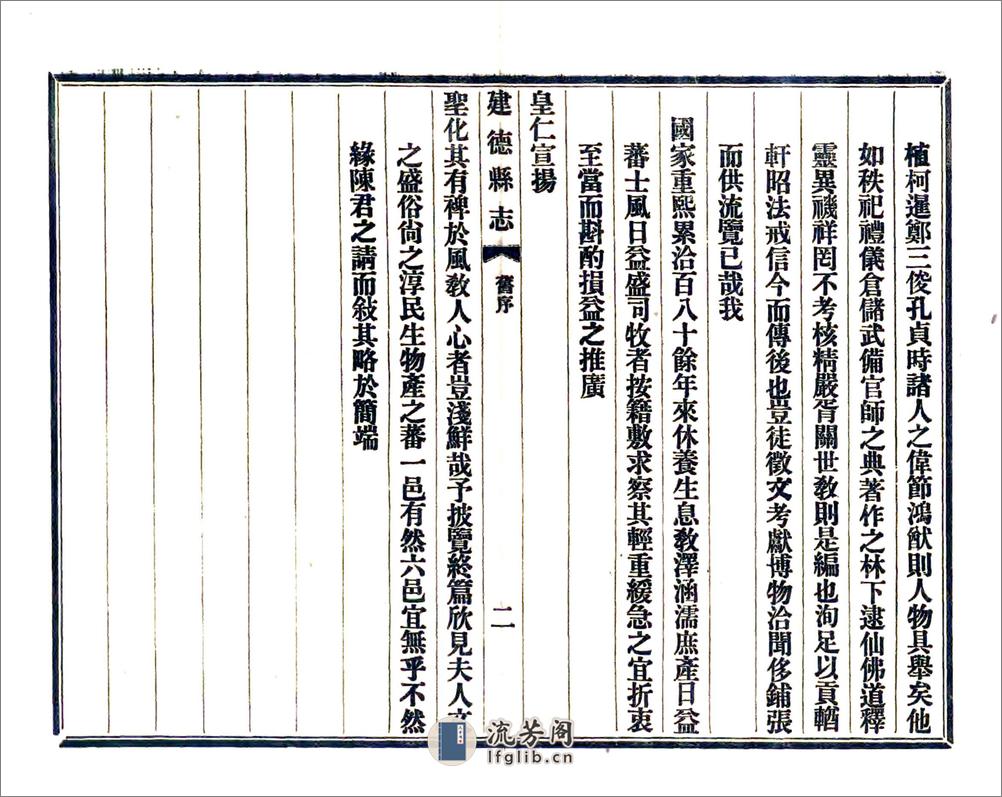 植柯暹鄭三俊孔貞時諸人之偉節鴻猷則人物具舉矣他
如秩祀禮儀倉儲武備官師之典著作之林下逮仙佛道釋
靈異禨祥罔不考核精嚴胥關世敎則是編也洵足以貢輶
軒昭法戒信今而傳後也豈徒徵文考獻博物洽聞侈鋪張
而供流覽已哉我
國家重熙累洽百八十餘年來休養生息敎澤涵濡庶產日益
蕃士風日益盛司牧者按籍敷求察其輕重緩急之宜折衷
至當而斟酌損益之推廣
皇仁宣揚
建德縣志 舊序 二
聖化其有裨於風敎人心者豈淺鮮哉予披覽終篇欣見夫人文
之盛俗尙之淳民生物產之蕃一邑有然六邑宜無乎不然
緣陳君之請而敍其略於簡端
流芳阁
lfglib.cn